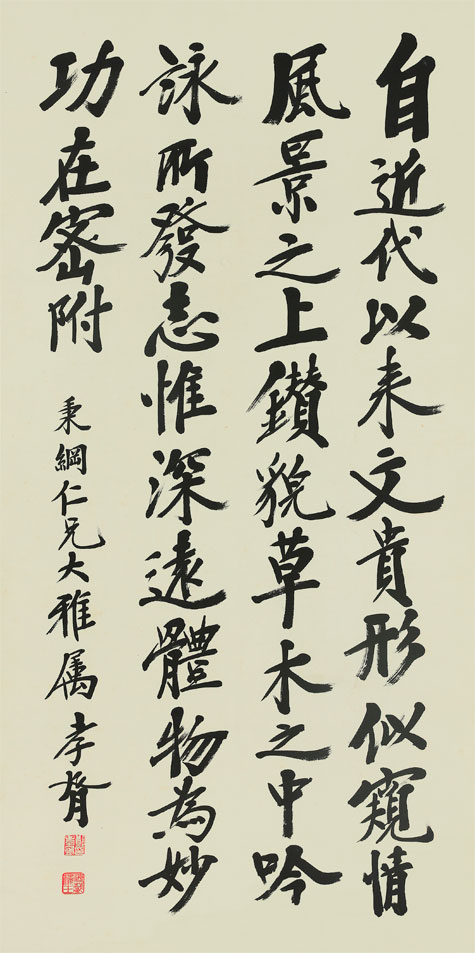 自近代以来文貴形似窺情
風景之上鑚貌草木之中吟
詠所發志惟深遠體物為妙
功在密附
秉綱仁兄大雅属 孝胥